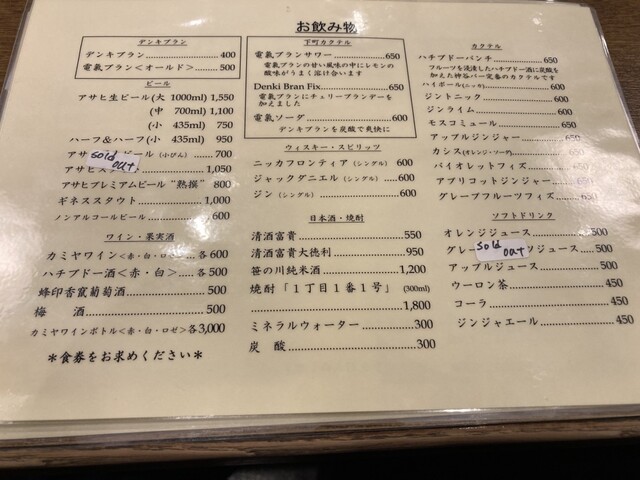 お飲み物
デンキブラン
デンキブラン 400
電氣ブラン<オールド> 500
ビール
アサヒ生ビール(大 1000ml) 1,550
(中 700ml) 1,100
(小 435ml) 750
ハーフ&ハーフ(小 435ml) 950
アサ ビール (小びん) 700
sold out
アサヒス 1,050
アサヒプレミアムビール "熟撰" 800
ギネススタウト 1,000
ノンアルコールビール 600
ワイン・果実酒
カミヤワイン<赤・白・ロゼ> 各600
ハチブドー酒<赤・白> 各500
蜂印香竄葡萄酒 500
梅 酒 500
カミヤワインボトル<赤・白・ロゼ> 各3,000
*食券をお求めください*
下町カクテル
電氣ブランサワー 650
電氣ブランの甘い風味の中にレモンの
酸味がうまく溶け合います
Denki Bran Fix 650
電氣ブランにチェリーブランデーを
加えました
電氣ソーダ 600
デンキブランを炭酸で爽快に
ウィスキー・スピリッツ
ニッカフロンティア (シングル) 600
ジャックダニエル (シングル) 600
ジン (シングル) 600
日本酒・焼酎
清酒富貴 550
清酒富貴大徳利 950
笹の川純米酒 1,200
焼酎「1丁目1番1号」 (300ml)
1,800
ミネラルウォーター 300
炭 酸 300
カクテル
ハチブドーパンチ 650
フルーツを浸漬したハチブドー酒に炭酸を
加えた神谷バー定番のカクテルです
ハイボール(ニッカ) 600
ジントニック 650
ジンライム 650
モスコミュール 650
アップルジンジャー 650
カシス(オレンジ・ソーダ) 650
バイオレットフィズ 650
アプリコットジンジャー 650
グレープフルーツフィズ 650
ソフトドリンク
オレンジジュース 500
グレー ツジュース 500
sold out
アップルジュース 500
ウーロン茶 450
コーラ 450
ジンジャエール 450